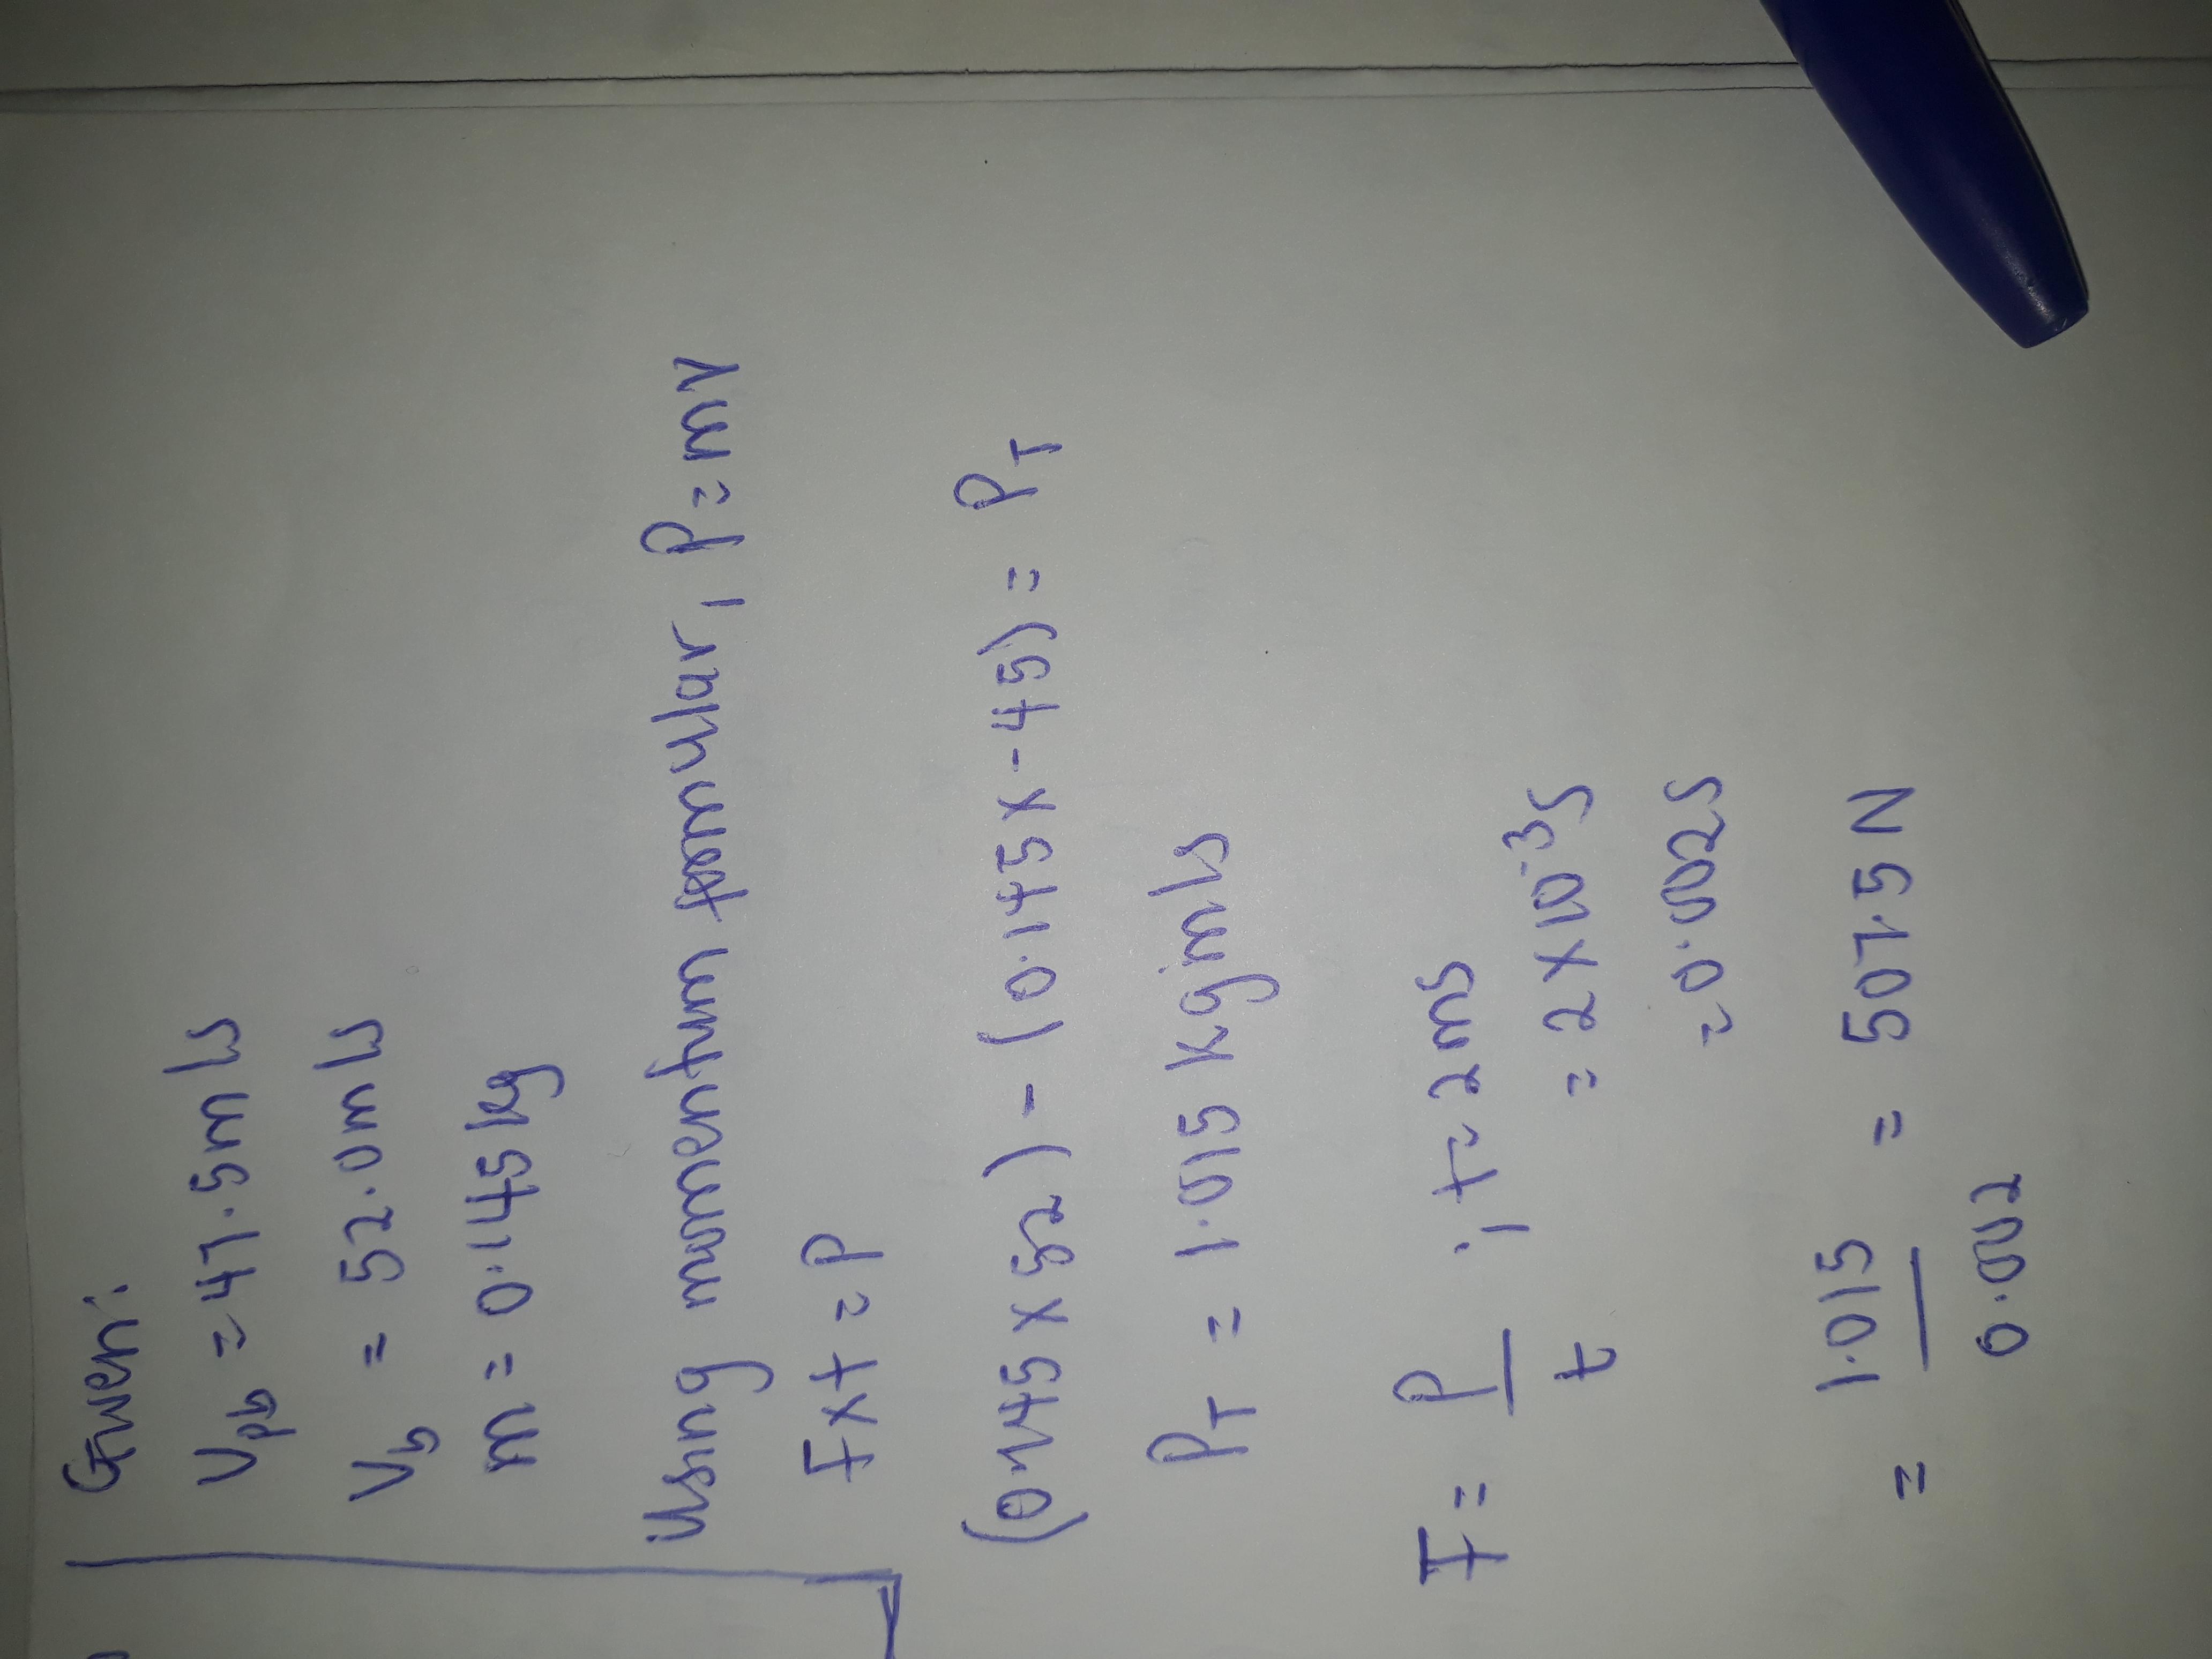 Given:
Vpb = 47.5m/s
Vb = 52.0m/s
m = 0.145kg
Using momentum fomular, P=mv
Fxt = P
(0.145 x 52) - (0.145 x -45) = PT
PT = 1.015 kgm/s
F = P/t ; t = 2ms
= 2 x 10⁻³s
= 0.002s
= 1.015/0.002 = 507.5N